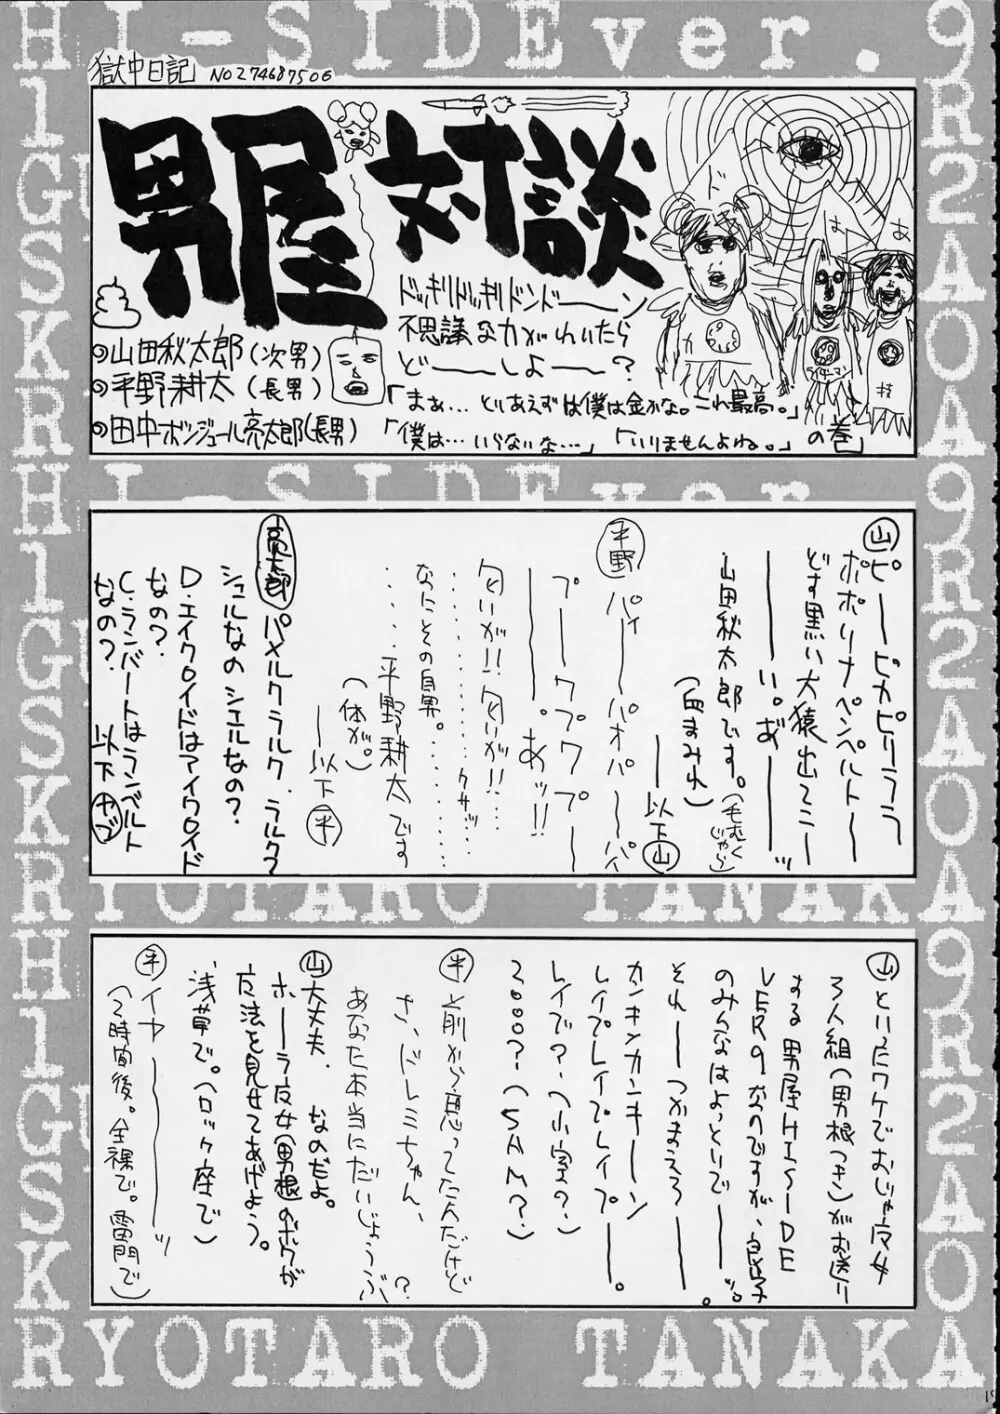 HI-SIDEver.9
獄中日記 NO274687506
男屋対談
ドッキリドッキリドンドーーン
不思議な力がわいたら
どーーしよーー?
◎山田秋太郎(次男)
◎平野耕太(長男)
◎田中ボンジュール亮太郎(長男)
「まぁ…とりあえずは僕は金かな。これ最高。」
「僕は…いらないな…」「いりませんよね。」の巻
山 ピーーピカピリララ
ポポリナペンペルトー
どす黒い大猿出てこー
ーーい。あ゛ーーッ
山田秋太郎です。(毛むくじゃら)
(血まみれ)
ー以下山
平野 パイーーパオパーーパイ
プーープワプワプーー
ーー。あッ!!
匂いが!!匂いが!!……
………クサッ……
なにその自男。………
……平野耕太です
(体が。)
ー以下平
亮太郎 パメルクラルク、ラルク?
シュルなのシエルなの?
D・エイクロイドはアイクロイド
なの?
C・ランバートはランベルト
なの? 以下
山 というワケでおじゃ女
3人組(男根つき)がお送り
する男屋HI-SIDE
VER9なのですが、良子
のみんなはよっといでーーッ。
それーーつかまえろーー。
カンキンカンキーーン
レイプレイプレイプーー。
レイで?(小室?)
2000?(SAM?)
平 前から思ってたんだけど
さ、ドレミちゃん、
あなた本当にだいじょうぶ?
山 大丈夫、なのだよ。
ホーラ女(男根)のボクが
方法を見せてあげよう。
浅草で。(ロック座で)
平 イヤーーーッ
(2時間後。全裸で。雷門で)
RYOTARO TANAKA